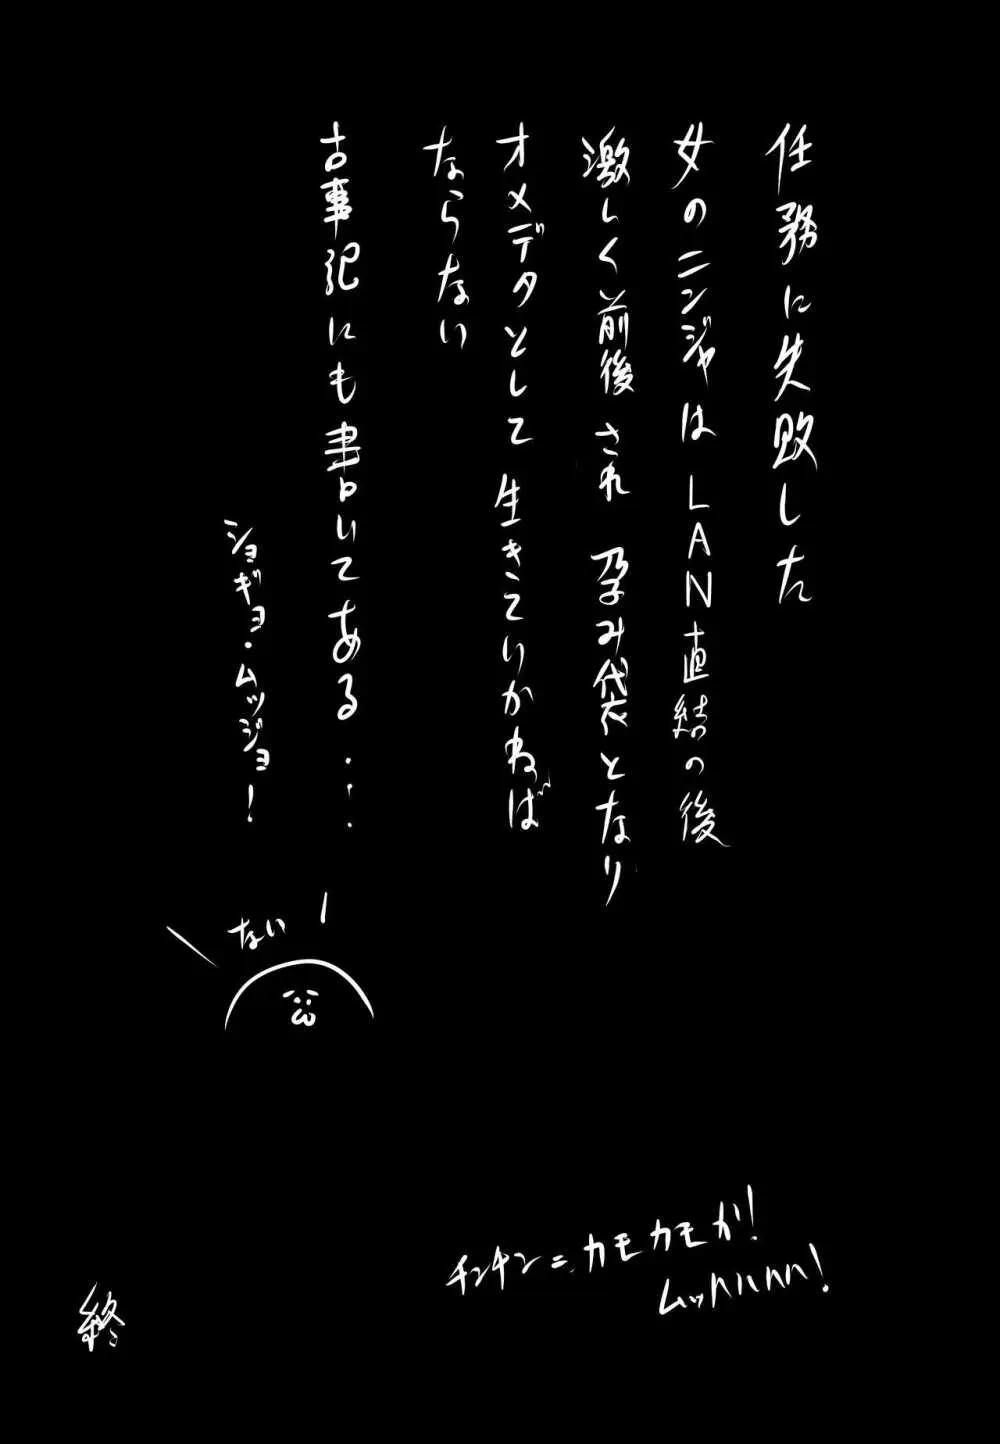 任務に失敗した
女のニンジャはLAN直結の後
激しく前後され 孕み袋となり
オメデタとして生きていかねば
ならない
古事記にも書いてある・・・
ショギョ・ムッジョ!
ない
チンチンニ カモカモが!
ムッハハハハ!
終